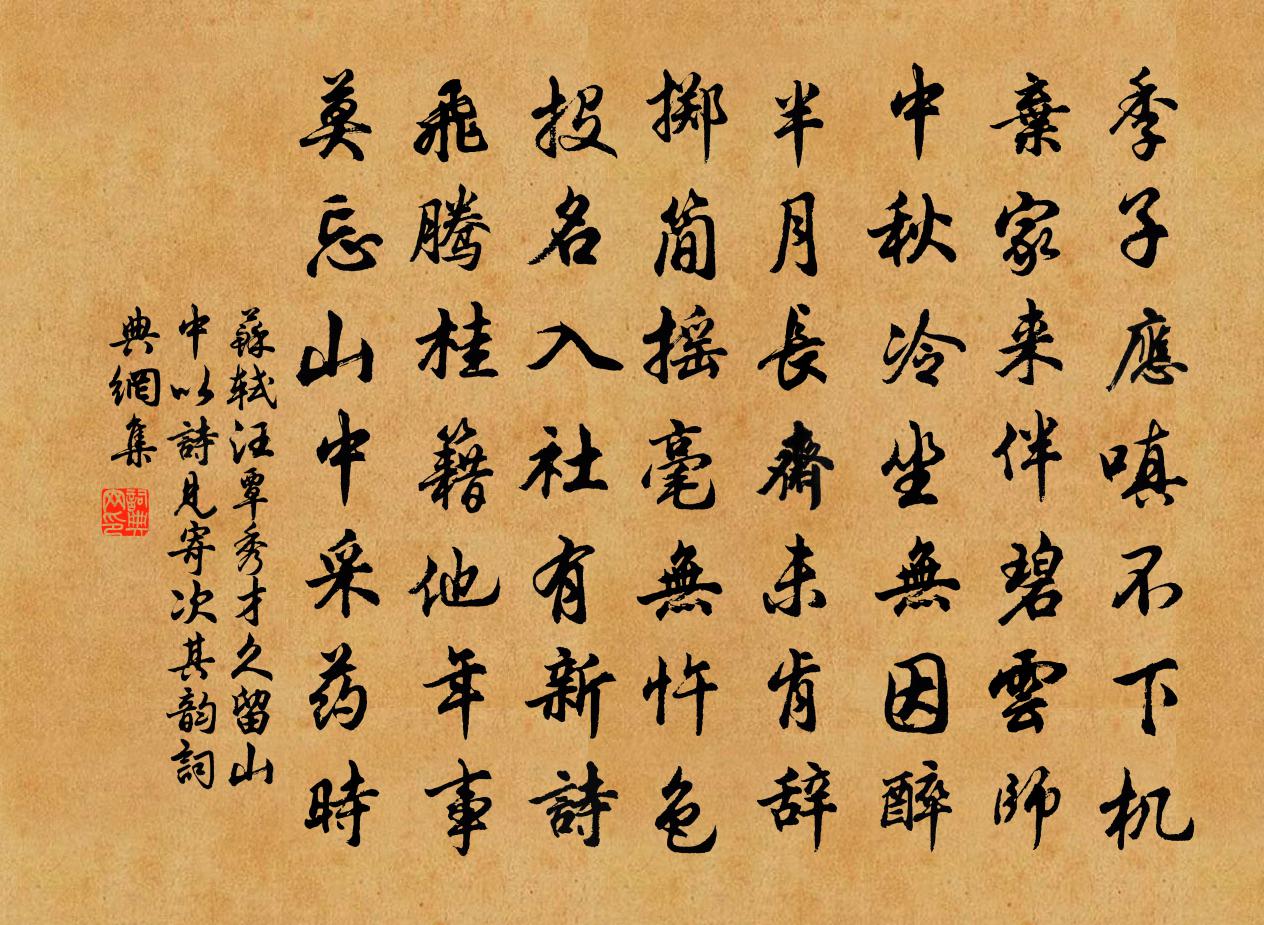 季子應嗔不下机
棄家来伴碧雲師
中秋冷坐無因醉
半月長齋未肯辞
擲簡摇毫無忤色
投名入社有新詩
飛騰桂籍他年事
莫忘山中采药時
蘇轼汪覃秀才久留山
中以詩見寄次其韵詞
典網集
詞典网印